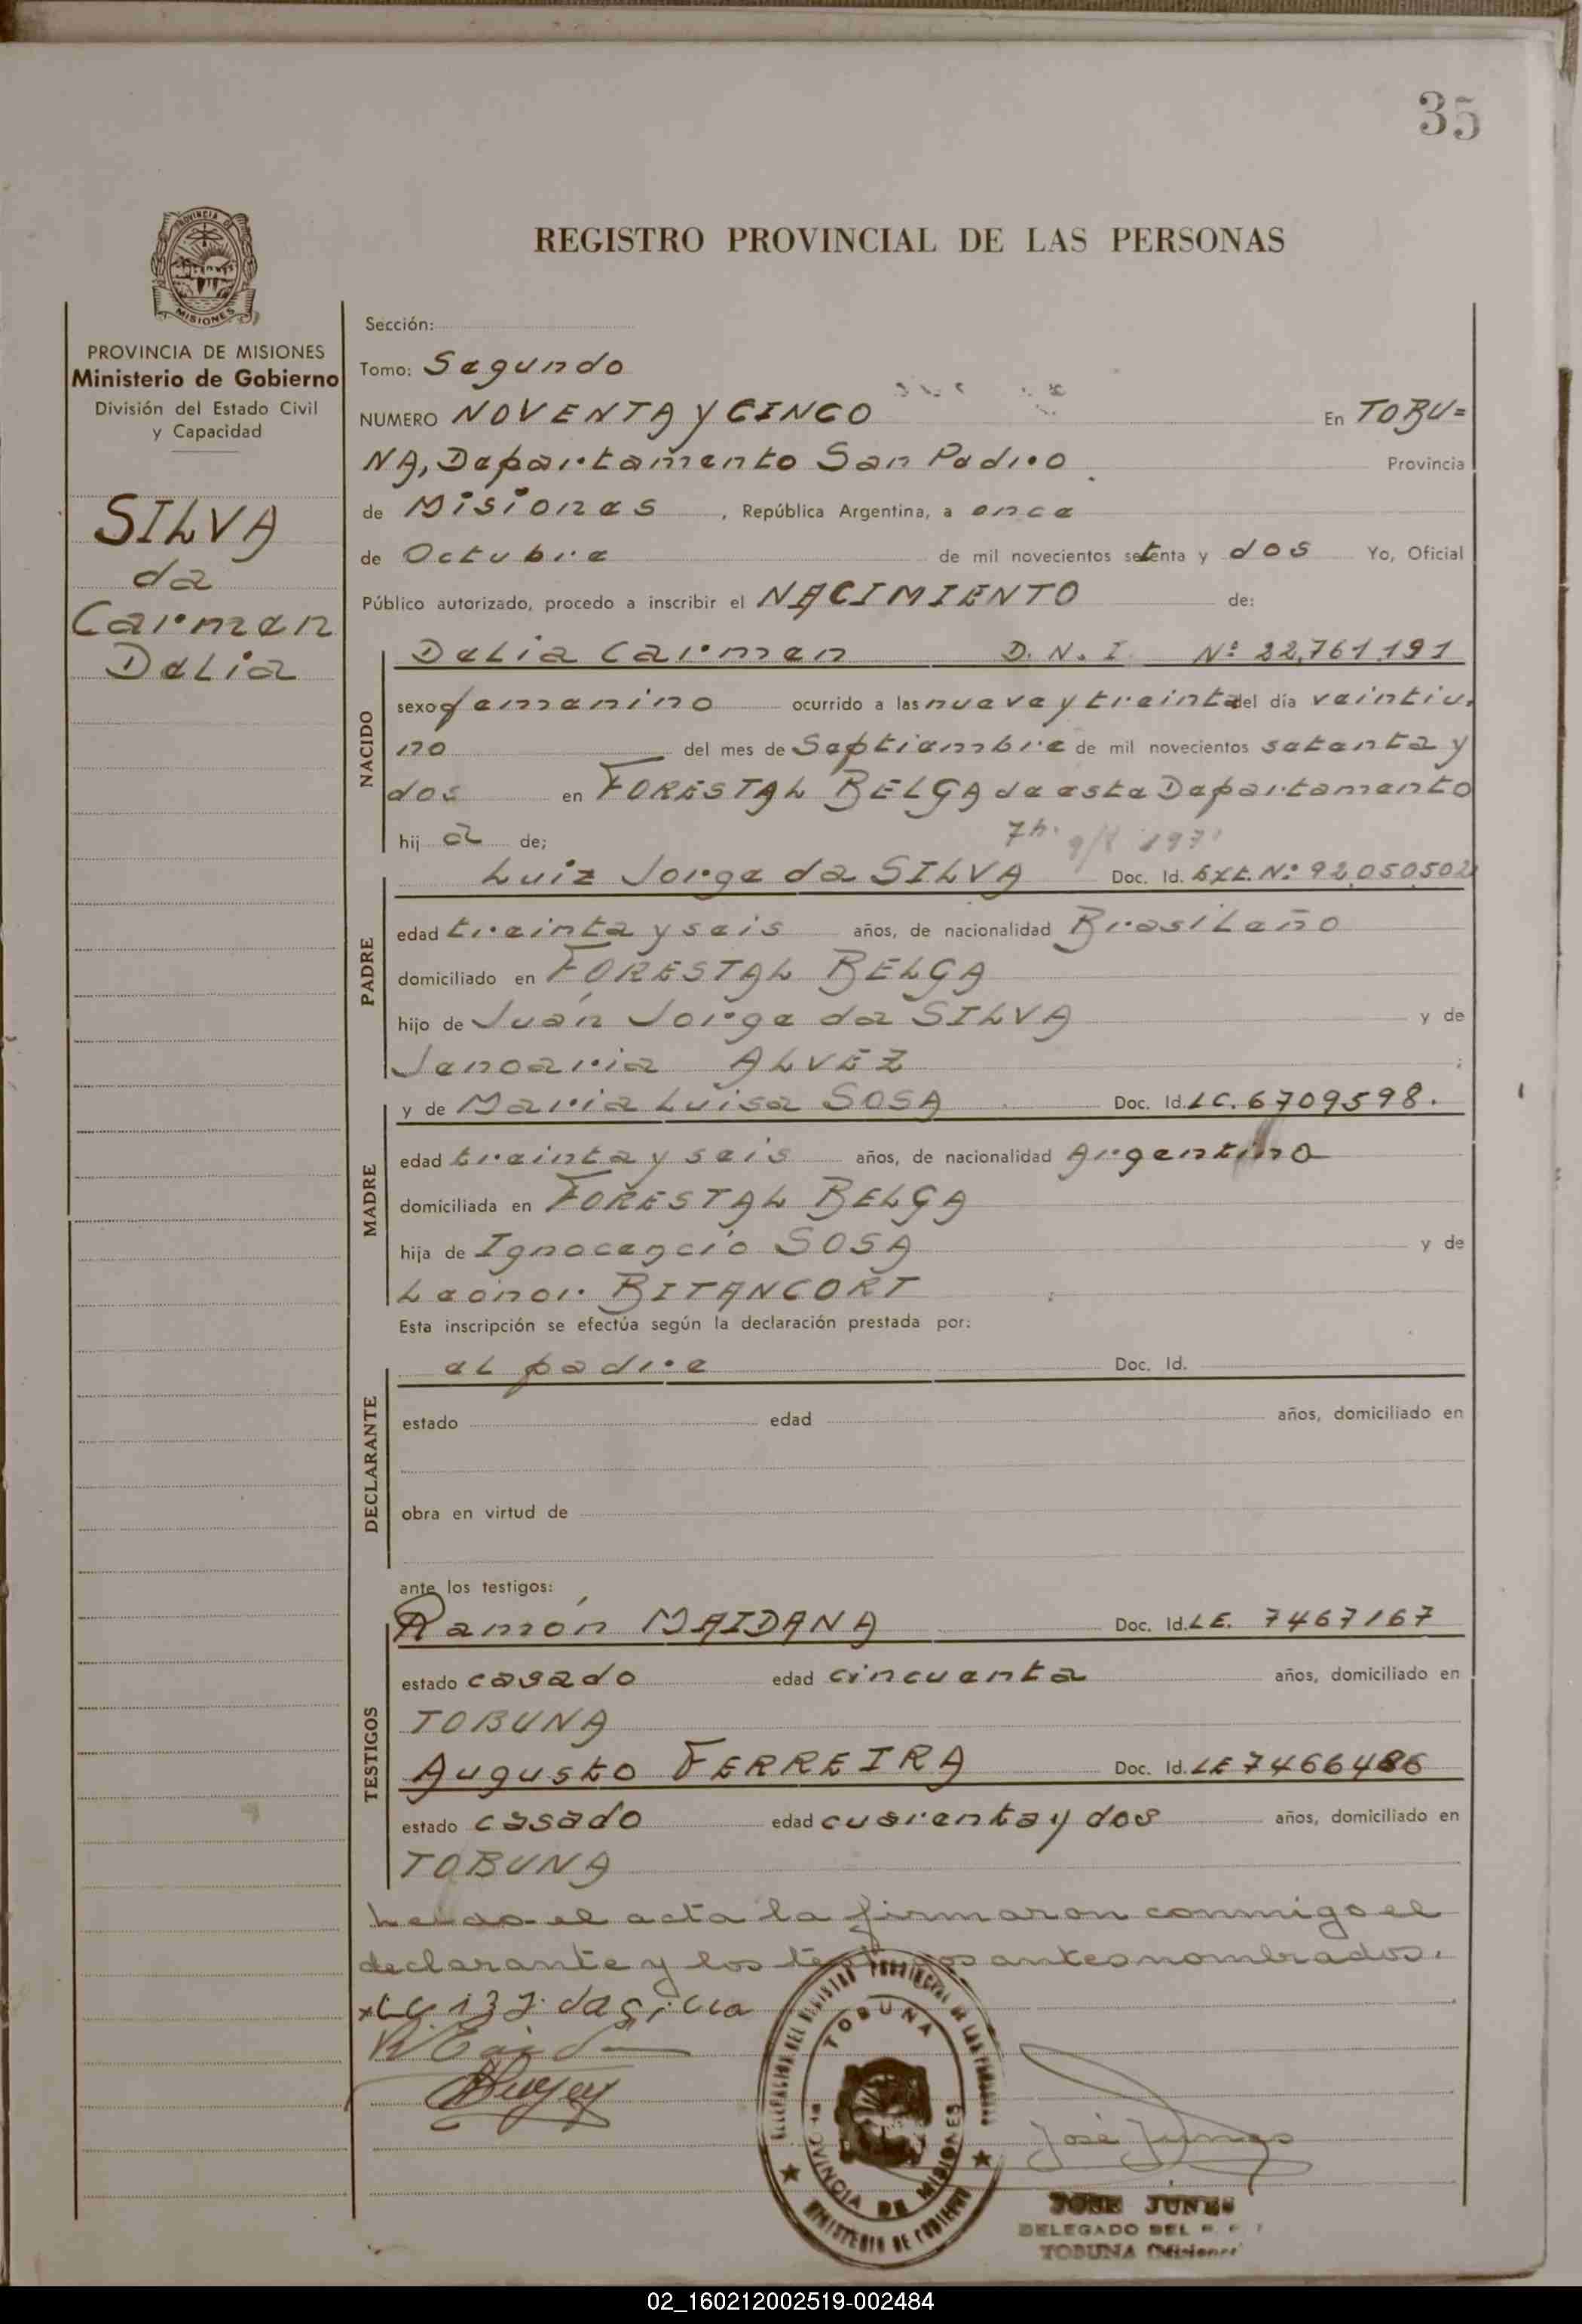 35
REGISTRO PROVINCIAL DE LAS PERSONAS
PROVINCIA DE MISIONES
Ministerio de Gobierno
División del Estado Civil
y Capacidad
SILVA
da
Carmen
Delia
Sección:
Tomo: Segundo
NUMERO NOVENTA y CINCO En TOBU=
NA, Departamento San Pedro Provincia
de Misiones, República Argentina, a once
de Octubre de mil novecientos setenta y dos Yo, Oficial
Público autorizado, procedo a inscribir el NACIMIENTO de:
NACIDO
Delia Carmen D.N.I. Nº 22,761,191
sexo femenino ocurrido a las nueve y treinta del día veintiu-
no del mes de Septiembre de mil novecientos setenta y
dos en FORESTAL BELGA de este Departamento
hij a de;
PADRE
Luiz Jorge da SILVA Doc. Id. Ext. Nº 92,050,502
edad treinta y seis años, de nacionalidad Brasileño
domiciliado en FORESTAL BELGA
hijo de Juán Jorge da SILVA y de
Jenoaria ALVEZ
MADRE
y de Maria Luisa SOSA Doc. Id. LC. 6709598.
edad treinta y seis años, de nacionalidad Argentina
domiciliada en FORESTAL BELGA
hija de Ignocencio SOSA y de
Leonor BITANCORT
Esta inscripción se efectúa según la declaración prestada por:
DECLARANTE
el padre Doc. Id.
estado edad años, domiciliado en
obra en virtud de
ante los testigos:
TESTIGOS
Ramón MAIDANA Doc. Id. LE. 7467167
estado casado edad cincuenta años, domiciliado en
TOBUNA
Augusto FERREIRA Doc. Id. LE 7466486
estado casado edad cuarenta y dos años, domiciliado en
TOBUNA
Leido el acta la firmaron conmigo el
declarante y los testigos antesnombrados.
TOBUNA
PROVINCIA DE MISIONES
MINISTERIO DE GOBIERNO
José Junes
JOSE JUNES
DELEGADO DEL
TOBUNA (Misiones)
02_160212002519-002484